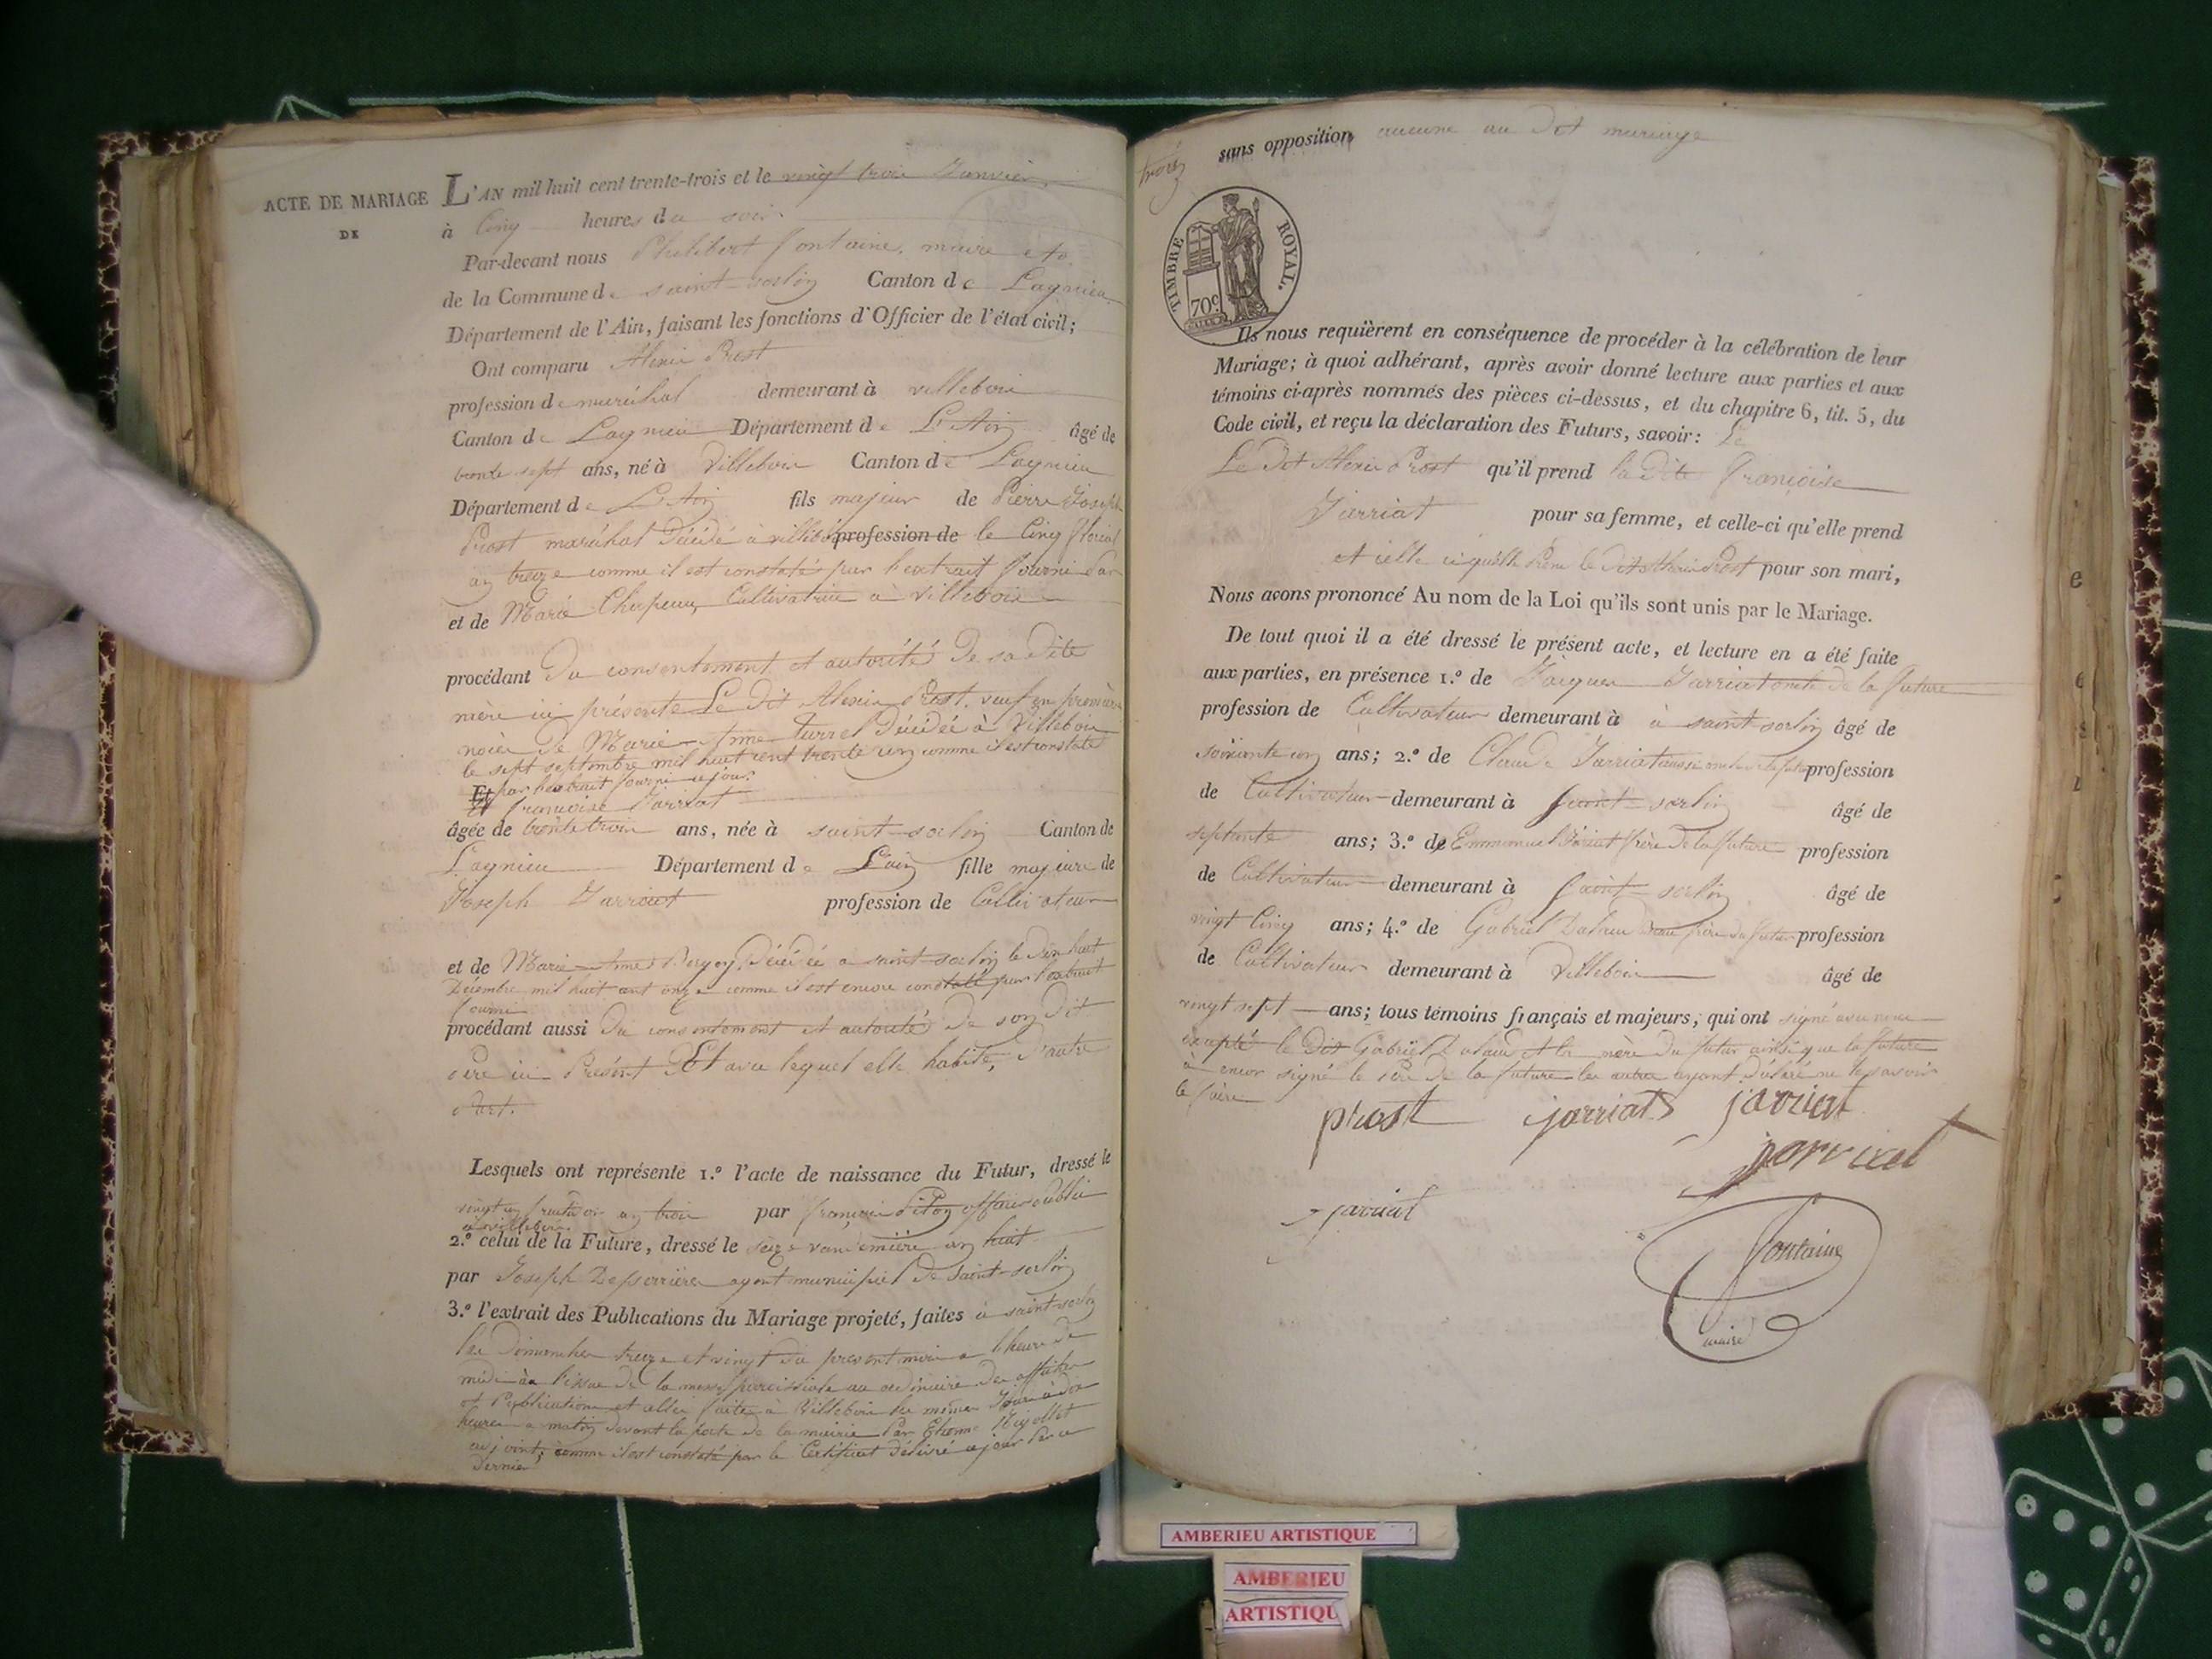 ACTE DE MARIAGE
DE
L'AN mil huit cent trente-trois et le vingt trois Janvier
à Cinq heures du soir
Par-devant nous Philibert fontaine, maire
de la Commune de saint-sorlin Canton de Lagnieu
Département de l'Ain, faisant les fonctions d'Officier de l'état civil;
Ont comparu Alexis Prost
profession de maréchal demeurant à villebois
Canton de Lagnieu Département de L'Ain âgé de
trente sept ans, né à Villebois Canton de Lagnieu
Département de L'Ain fils majeur de Pierre Joseph
Prost maréchal Décédé à villebois profession de le Cinq floréal
an treize comme il est constaté par l'extrait fourni
et de Marie Cultivatrice à Villebois
procédant du consentement et autorité de sa dite
mère ici présente Le dit Alexis Prost, veuf en première
noces de Marie Anne Turrel Décédée à Villebois
le sept septembre mil huit cent trente un comme il est constaté
par l'extrait fourni ce jour.
Et françoise Jarriat
âgée de trente trois ans, née à saint-sorlin Canton de
Lagnieu Département de L'ain fille majeure de
Joseph Jarriat profession de Cultivateur
et de Marie Anne Décédée à saint-sorlin le dix huit
Décembre mil huit cent onze comme il est encore constaté par l'extrait
fourni
procédant aussi du consentement et autorité de son dit
Père ici Présent Et avec lequel elle habite, d'autre
Part.
Lesquels ont représenté 1.º l'acte de naissance du Futur, dressé le
fructidor an trois par françois officier public
à villebois.
2.º celui de la Future, dressé le seize vendemière an huit
par Joseph agent municipal de Saint-sorlin
3.º l'extrait des Publications du Mariage projeté, faites à saint-sorlin
les Dimanches treize et vingt du présent mois à l'heure de
midi à l'issue de la messe paroissiale au ordinaire des affiches
et Publications et celles faites à Villebois les mêmes Jours à dix
heures matin devant la porte de la mairie Par
adjoint, comme il est constaté par le Certificat délivré ce jour Par ce
dernier
sans opposition aucune au dit mariage
trois
TIMBRE ROYAL.
70c
Ils nous requièrent en conséquence de procéder à la célébration de leur
Mariage; à quoi adhérant, après avoir donné lecture aux parties et aux
témoins ci-après nommés des pièces ci-dessus, et du chapitre 6, tit. 5, du
Code civil, et reçu la déclaration des Futurs, savoir: Le
Le dit Alexis Prost qu'il prend la dite françoise
Jarriat pour sa femme, et celle-ci qu'elle prend
et celle ci qu'elle Prend le dit Alexis Prost pour son mari,
Nous avons prononcé Au nom de la Loi qu'ils sont unis par le Mariage.
De tout quoi il a été dressé le présent acte, et lecture en a été faite
aux parties, en présence 1.º de Jacques Jarriat oncle de la future
profession de Cultivateur demeurant à à saint-sorlin âgé de
soixante ans; 2.º de Claude Jarriat aussi oncle profession
de Cultivateur demeurant à saint-sorlin âgé de
septante ans; 3.º de Emmanuel Jarriat frère de la future profession
de Cultivateur demeurant à saint-sorlin âgé de
vingt Cinq ans; 4.º de Gabriel beau frère du futur profession
de Cultivateur demeurant à Villebois âgé de
vingt sept ans; tous témoins français et majeurs, qui ont signé avec nous
excepté le dit Gabriel et la mère du futur ainsi que la future
à encor signé le Père de la future les autres ayant déclaré ne le savoir
le faire
prost jarriat jarriat
jarriat
jarriat
fontaine
maire
AMBERIEU ARTISTIQUE
AMBERIEU
ARTISTIQU